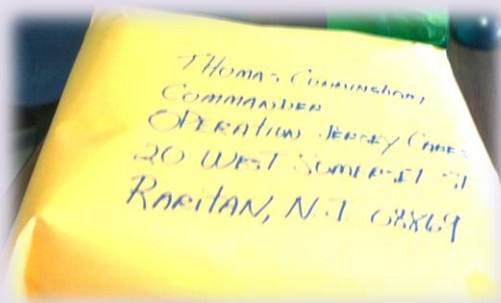 Thomas Cunningham,
Commander
Operation Jersey Cares
20 West Somerset St
Raritan, N.J. 08869